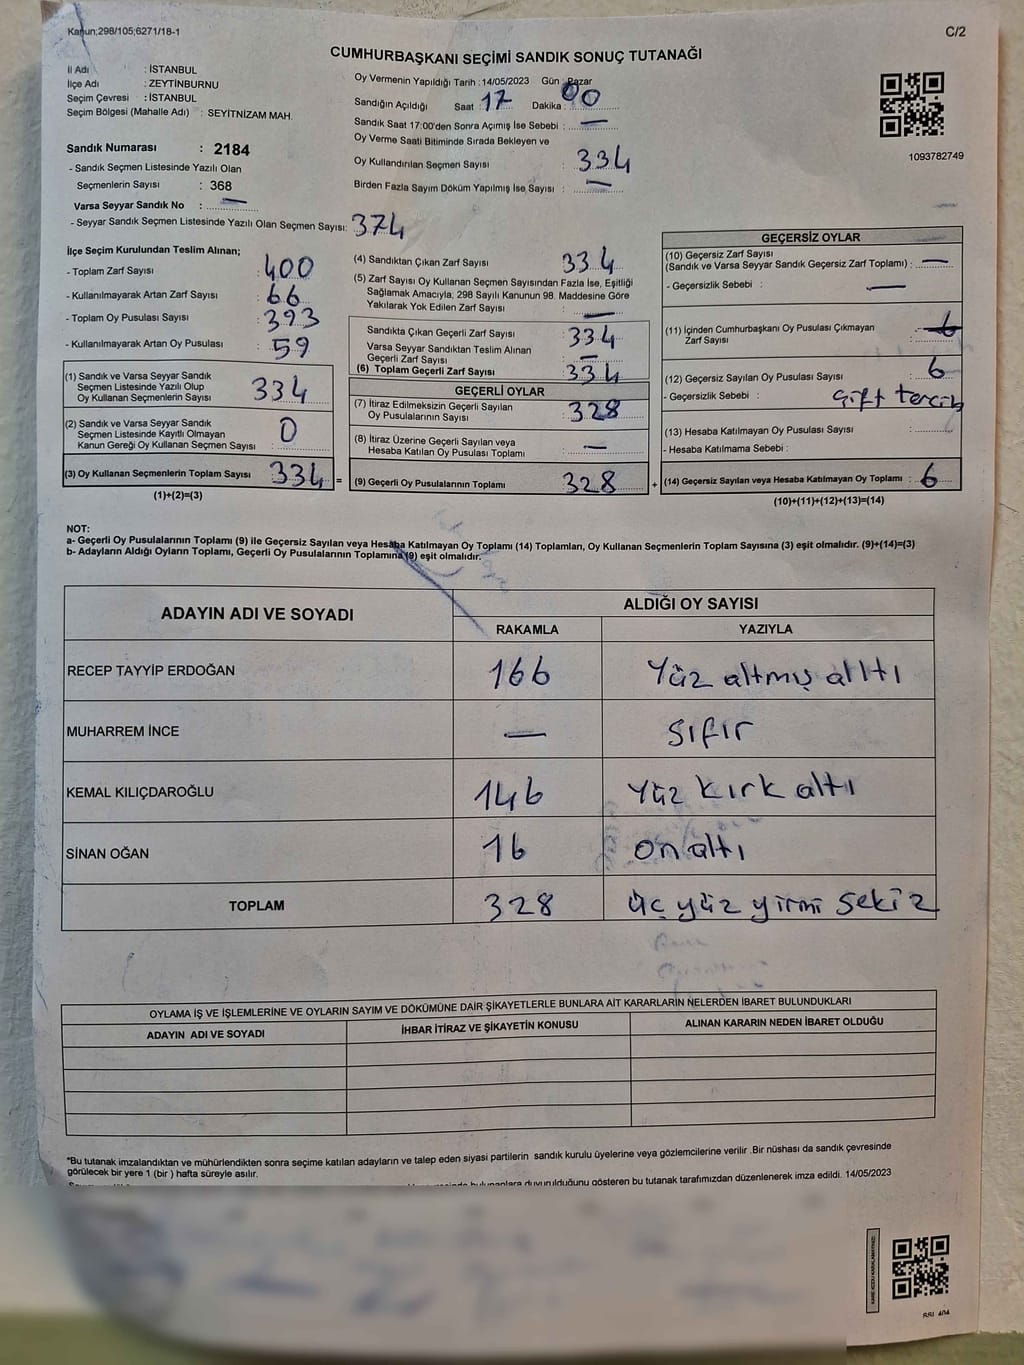 Kanun;298/105;6271/18-1
C/2
CUMHURBAŞKANI SEÇİMİ SANDIK SONUÇ TUTANAĞI
İl Adı : İSTANBUL
İlçe Adı : ZEYTİNBURNU
Seçim Çevresi : İSTANBUL
Seçim Bölgesi (Mahalle Adı) : SEYİTNİZAM MAH.
Sandık Numarası : 2184
- Sandık Seçmen Listesinde Yazılı Olan
Seçmenlerin Sayısı : 368
Varsa Seyyar Sandık No : —
- Seyyar Sandık Seçmen Listesinde Yazılı Olan Seçmen Sayısı: 374
Oy Vermenin Yapıldığı Tarih : 14/05/2023 Gün : Pazar
Sandığın Açıldığı Saat : 17 Dakika : 00
Sandık Saat 17:00'den Sonra Açımış İse Sebebi : —
Oy Verme Saati Bitiminde Sırada Bekleyen ve
Oy Kullandırılan Seçmen Sayısı : 334
Birden Fazla Sayım Döküm Yapılmış İse, Sayısı : —
1093782749
İlçe Seçim Kurulundan Teslim Alınan;
- Toplam Zarf Sayısı : 400
- Kullanılmayarak Artan Zarf Sayısı : 66
- Toplam Oy Pusulası Sayısı : 393
- Kullanılmayarak Artan Oy Pusulası : 59
(1) Sandık ve Varsa Seyyar Sandık
Seçmen Listesinde Yazılı Olup
Oy Kullanan Seçmenlerin Sayısı : 334
(2) Sandık ve Varsa Seyyar Sandık
Seçmen Listesinde Kayıtlı Olmayan
Kanun Gereği Oy Kullanan Seçmen Sayısı : 0
(3) Oy Kullanan Seçmenlerin Toplam Sayısı : 334 =
(1)+(2)=(3)
(4) Sandıktan Çıkan Zarf Sayısı : 334
(5) Zarf Sayısı Oy Kullanan Seçmen Sayısından Fazla İse, Eşitliği
Sağlamak Amacıyla, 298 Sayılı Kanunun 98. Maddesine Göre
Yakılarak Yok Edilen Zarf Sayısı : —
Sandıkta Çıkan Geçerli Zarf Sayısı : 334
Varsa Seyyar Sandıktan Teslim Alınan
Geçerli Zarf Sayısı : —
(6) Toplam Geçerli Zarf Sayısı : 334
GEÇERLİ OYLAR
(7) İtiraz Edilmeksizin Geçerli Sayılan
Oy Pusulalarının Sayısı : 328
(8) İtiraz Üzerine Geçerli Sayılan veya
Hesaba Katılan Oy Pusulası Toplamı : —
(9) Geçerli Oy Pusulalarının Toplamı : 328 +
GEÇERSİZ OYLAR
(10) Geçersiz Zarf Sayısı
(Sandık ve Varsa Seyyar Sandık Geçersiz Zarf Toplamı) : —
- Geçersizlik Sebebi : —
(11) İçinden Cumhurbaşkanı Oy Pusulası Çıkmayan
Zarf Sayısı :
(12) Geçersiz Sayılan Oy Pusulası Sayısı : 6
- Geçersizlik Sebebi : Çift tercih
(13) Hesaba Katılmayan Oy Pusulası Sayısı :
- Hesaba Katılmama Sebebi :
(14) Geçersiz Sayılan veya Hesaba Katılmayan Oy Toplamı : 6
(10)+(11)+(12)+(13)=(14)
NOT:
a- Geçerli Oy Pusulalarının Toplamı (9) ile Geçersiz Sayılan veya Hesaba Katılmayan Oy Toplamı (14) Toplamları, Oy Kullanan Seçmenlerin Toplam Sayısına (3) eşit olmalıdır. (9)+(14)=(3)
b- Adayların Aldığı Oyların Toplamı, Geçerli Oy Pusulalarının Toplamına (9) eşit olmalıdır.
ADAYIN ADI VE SOYADI
ALDIĞI OY SAYISI
RAKAMLA YAZIYLA
RECEP TAYYİP ERDOĞAN 166 Yüz altmış alltı
MUHARREM İNCE — Sıfır
KEMAL KILIÇDAROĞLU 146 Yüz kırk altı
SİNAN OĞAN 16 on altı
TOPLAM 328 üç yüz yirmi sekiz
OYLAMA İŞ VE İŞLEMLERİNE VE OYLARIN SAYIM VE DÖKÜMÜNE DAİR ŞİKAYETLERLE BUNLARA AİT KARARLARIN NELERDEN İBARET BULUNDUKLARI
ADAYIN ADI VE SOYADI İHBAR İTİRAZ VE ŞİKAYETİN KONUSU ALINAN KARARIN NEDEN İBARET OLDUĞU
*Bu tutanak imzalandıktan ve mühürlendikten sonra seçime katılan adayların ve talep eden siyasi partilerin sandık kurulu üyelerine veya gözlemcilerine verilir .Bir nüshası da sandık çevresinde
görülecek bir yere 1 (bir ) hafta süreyle asılır.
bulunanlara duyurulduğunu gösteren bu tutanak tarafımızdan düzenlenerek imza edildi. 14/05/2023